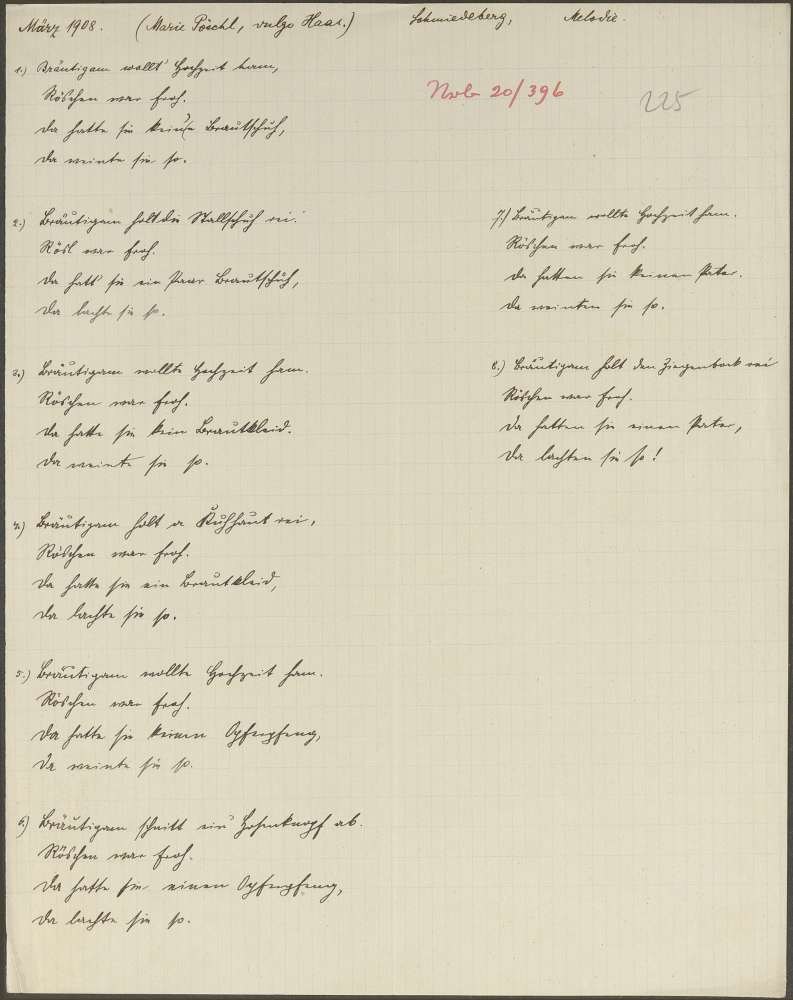 März 1908. (Marie Pöschl, vulgo Haas.) Schmiedeberg, Melodie.
Nvlr 20/396
225
1.) Bräutigam wollt' Hochzeit ham,
Röschen war froh.
Da hatte sie keine Brautschuh,
Da weinte sie so.
2.) Bräutigam holt die Stallschuh rei.
Rösl war froh.
Da hatt' sie ein Paar Brautschuh,
Da lachte sie so.
3.) Bräutigam wollte Hochzeit ham.
Röschen war froh.
Da hatte sie kein Brautkleid.
Da weinte sie so.
4.) Bräutigam holt a Kuhhaut rei,
Röschen war froh.
Da hatte sie ein Brautkleid,
Da lachte sie so.
5.) Bräutigam wollte Hochzeit ham.
Röschen war froh.
Da hatte sie keinen Opferpfeng,
Da weinte sie so.
6.) Bräutigam schnitt ein' Hosenknopf ab.
Röschen war froh.
Da hatte sie einen Opferpfeng,
Da lachte sie so.
7.) Bräutigam wollte Hochzeit ham.
Röschen war froh.
Da hatten sie keinen Pater.
Da weinten sie so.
8.) Bräutigam holt den Ziegenbock rei
Röschen war froh.
Da hatten sie einen Pater,
Da lachten sie so!